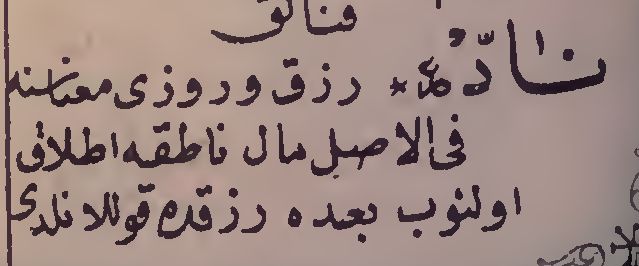 نادّ * رزق و روزى معناسنه
فى الاصل مال ناطقه اطلاق
اولنوب بعده رزقده قوللانلدى